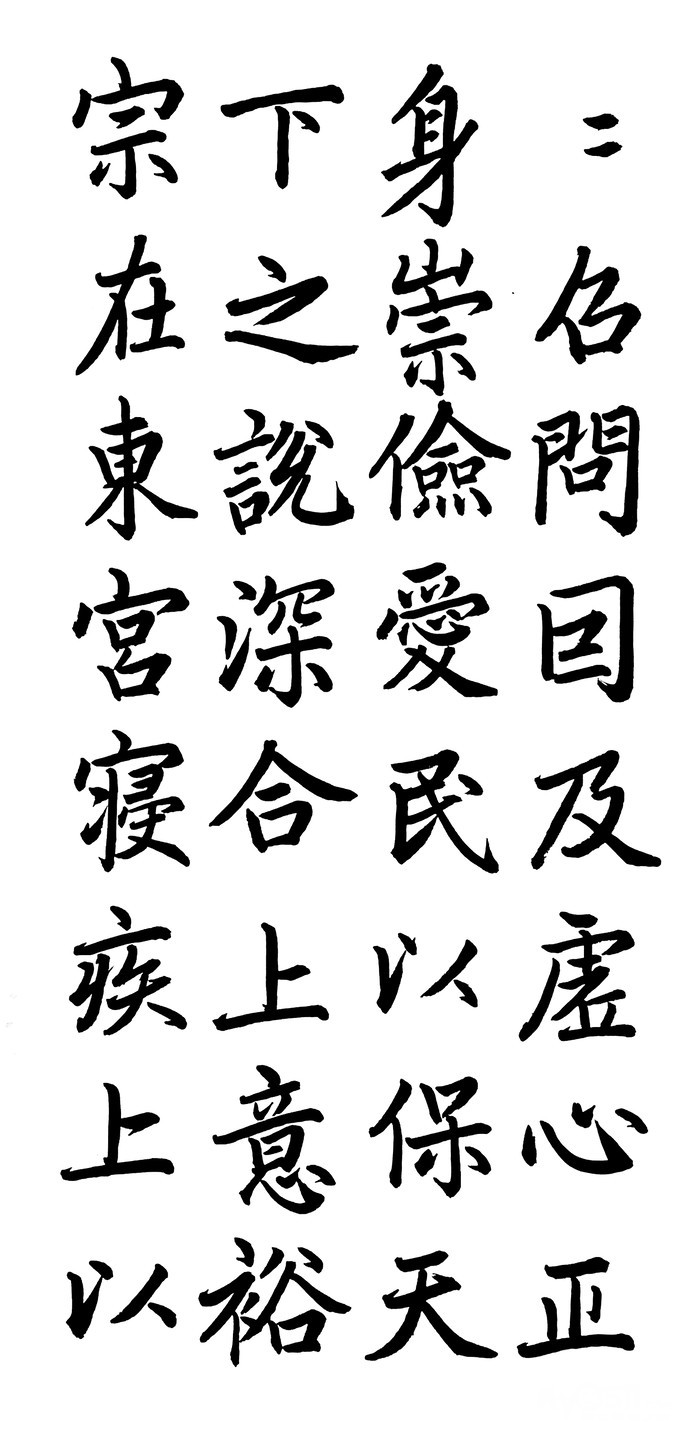 〻召問因及虛心正
身崇儉愛民以保天
下之說深合上意裕
宗在東宮寢疾上以